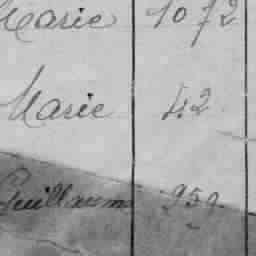 Marie 1072
Marie 42
Guillaume 259